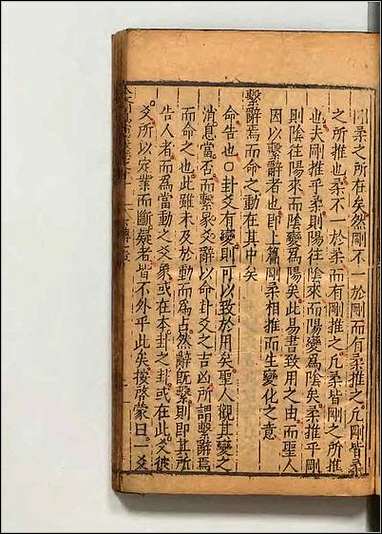 剛柔之所在矣然剛不一於剛而有柔推之凡剛皆柔
之所推也柔不一於柔而有剛推之凡柔皆剛之所推
也夫剛推乎柔則陽往陰來而陽變為陰矣柔推乎剛
則陰往陽來而陰變為陽矣此易書致用之由而聖人
因以繫辭者也即上篇剛柔相推而生變化之意
繫辭焉而命之動在其中矣
命告也○卦爻有變則可以致於用矣聖人觀其變之
消息當否而繫彖爻辭以命卦爻之吉凶所謂繫辭焉
而命之也此雖未及於動而為占然辭既繫則即其所
告人者而為當動之爻象或在本卦之卦或在此爻彼
爻所以定業而斷疑者皆不外乎此矣按啓蒙曰一爻